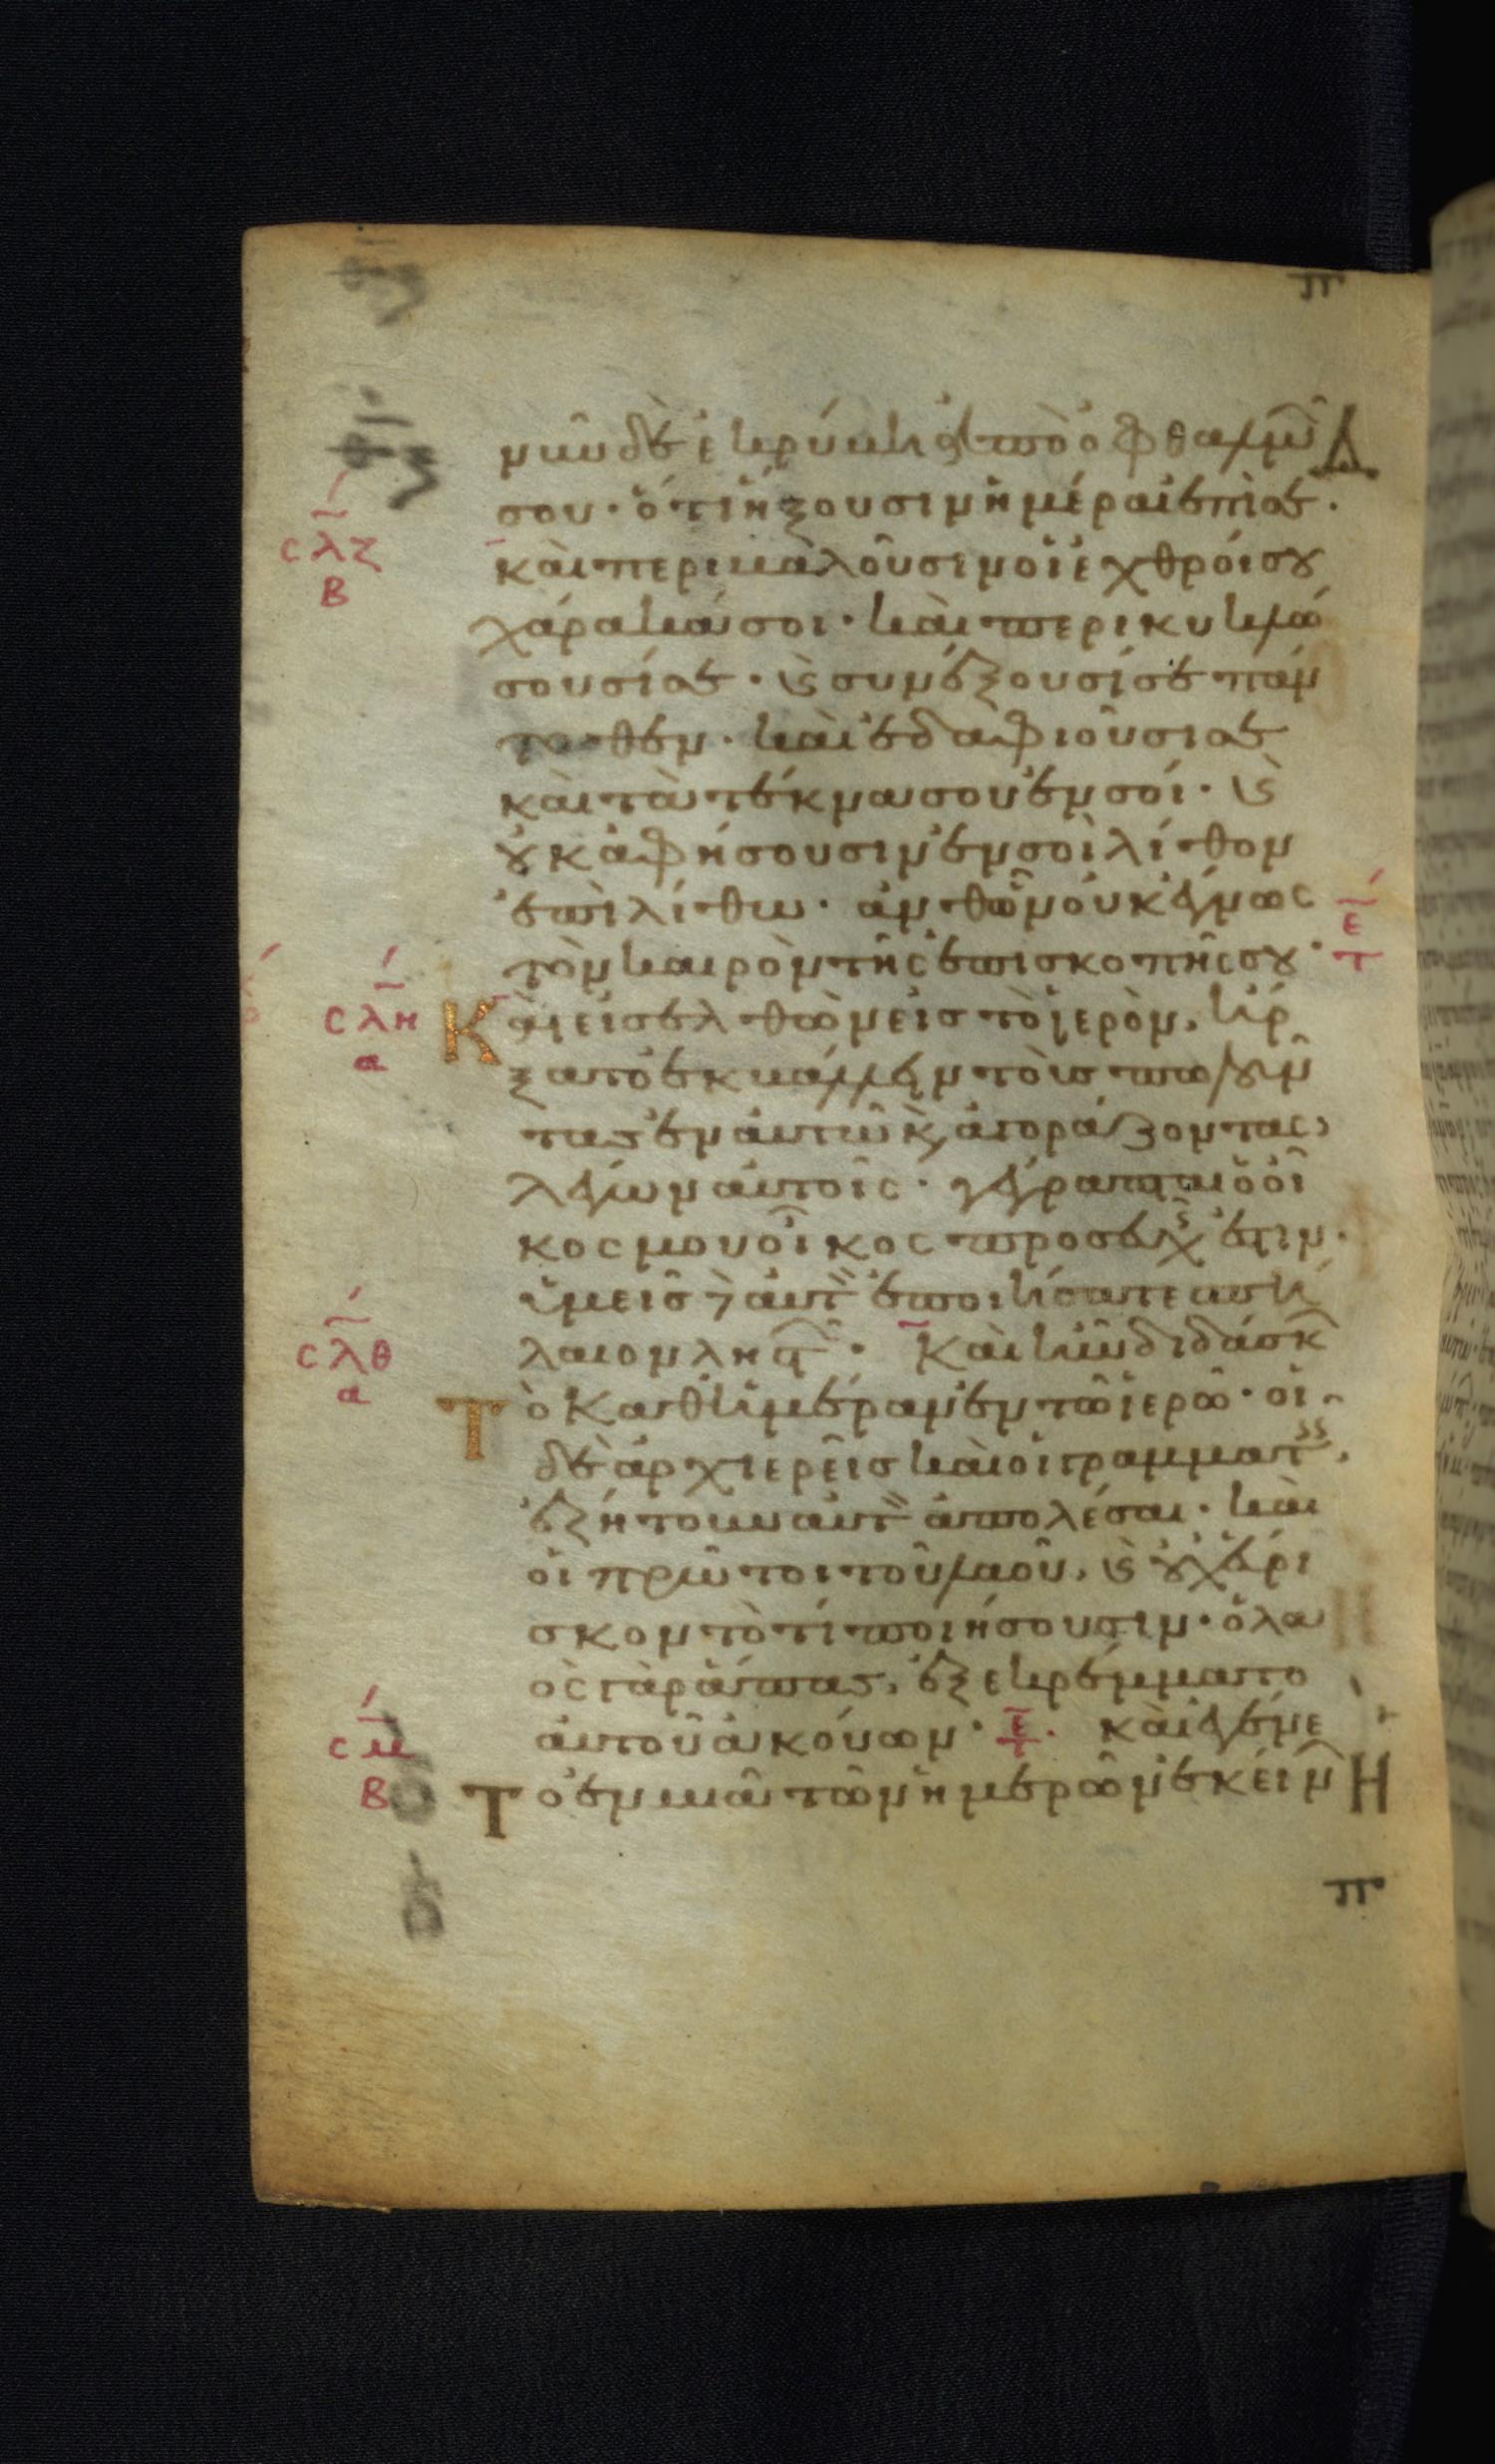 π
νῦν δὲ ἐκρύβη ἀπὸ ὀφθαλμῶ
σου· ὅτι ἥξουσιν ἡμέραι ἐπί σε·
καὶ περιβαλοῦσιν οἱ ἐχθροί σου
χάρακά σοι· καὶ περικυκλώ
σουσί σε· καὶ συνέξουσί σε πάν
τοθεν· καὶ ἐδαφιοῦσι σε
καὶ τὰ τέκνα σου ἐν σοί· καὶ
οὐκ ἀφήσουσιν ἐν σοὶ λίθον
ἐπὶ λίθω· ἀνθ' ὧν οὐκ ἔγνως
τὸν καιρὸν τῆς ἐπισκοπῆς σου·
Καὶ εἰσελθὼν εἰς τὸ ἱερὸν, ἤρ
ξατο ἐκβάλλειν τοὺς πωλοῦν
τας ἐν αὐτῶ κ, ἀγοράζοντας,
λέγων αὐτοῖς· γέγραπται ὁ οἶ
κος μου οἶκος προσευχῆς ἐστιν·
ὑμεῖς δὲ αὐτ ἐποιήσατε σπή
λαιον ληστ· Καὶ ἦν διδάσκ
Τὸ καθ' ἡμέραν ἐν τῶ ἱερῶ· οἱ
δὲ ἀρχιερεῖς καὶ οἱ γραμματ,
ἐζήτουν αὐτ ἀπολέσαι· καὶ
οἱ πρῶτοι τοῦ λαοῦ, καὶ οὐχ εὕρι
σκον τὸ τί ποιήσουσιν· ὁ λα
ὸς γὰρ ἅπας, ἐξεκρέματο
αὐτοῦ ἀκούων· καὶ ἐγένε
Το ἐν μιᾶ τῶν ἡμερῶν ἐκείν
π
σλζ
β
σλη
α
σλθ
α
σμ
β